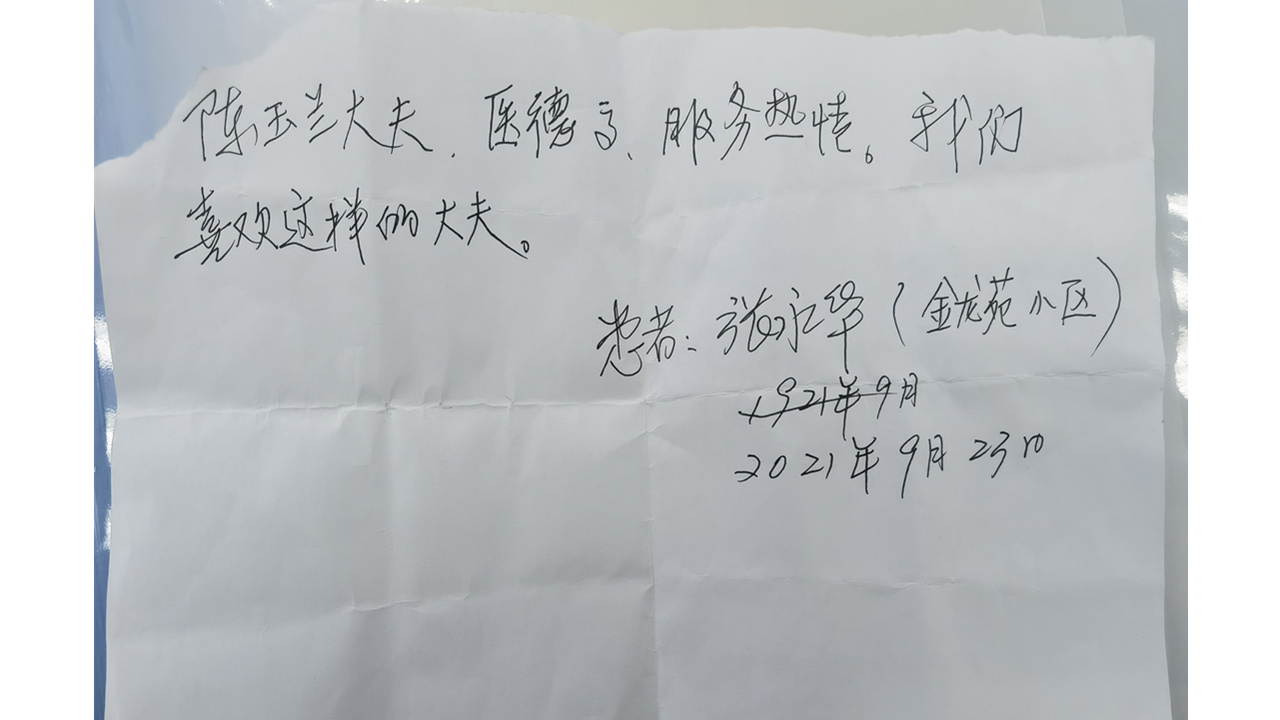 陈玉兰大夫、医德高、服务热情。我们
喜欢这样的大夫。
患者：张永华（金龙苑小区）
1921年9月
2021年9月23日